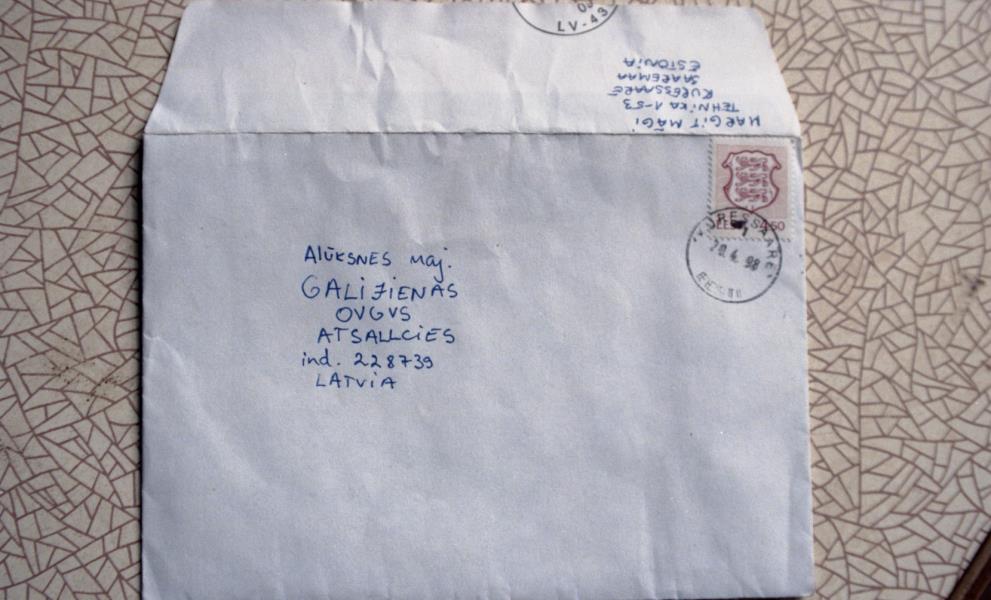 LV-43
MARGIT MÄGI
TEHNIKA 1-53
KURESSAARE
SAAREMAA
ESTONIA
KURESSAARE
EESTI
4.60
4. 98
Alūksnes maj.
GALIJIENAS
OVGVS
ATSALLCIES
ind. 228739
LATVIA